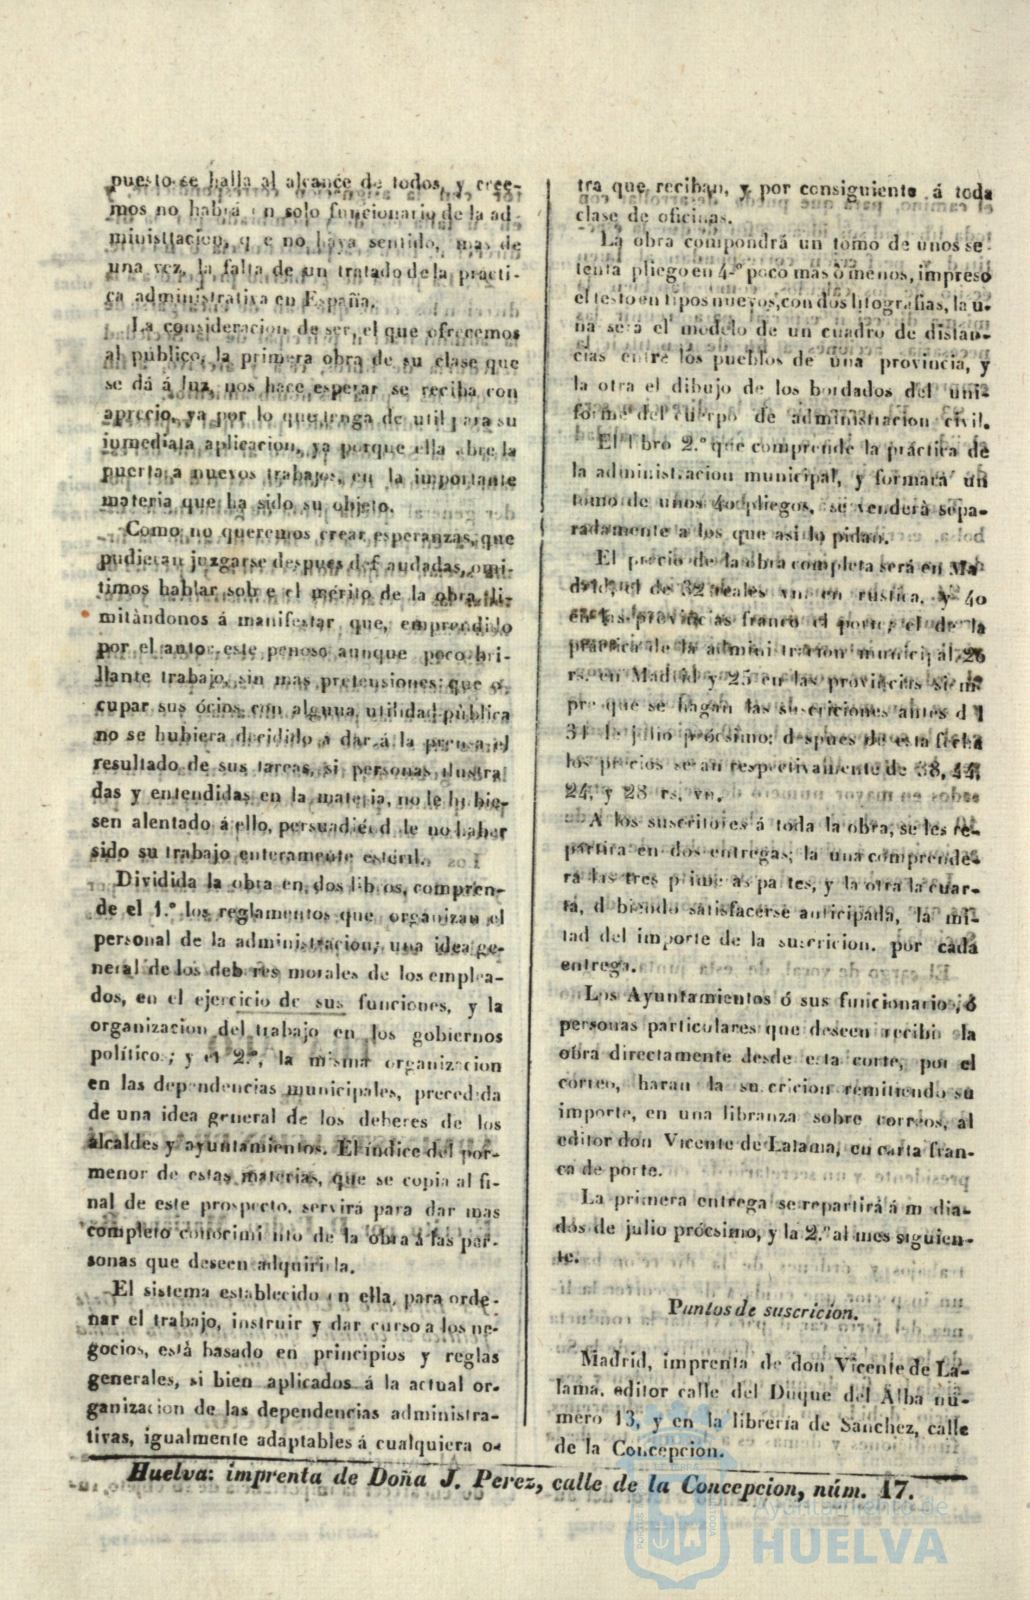 puesto se halla al alcance de todos, y cree-
mos no habrá un solo funcionario de la ad-
ministracion, q e no haya sentido, mas de
una vez, la falta de un tratado de la practi-
ca administrativa en España.
La consideracion de ser, el que ofrecemos
al público, la primera obra de su clase que
se dá á luz, nos hace esperar se reciba con
aprecio, ya por lo que tenga de util para su
inmediata aplicacion, ya porque ella abre la
puerta a nuevos trabajos, en la importante
materia que ha sido su objeto.
Como no queremos crear esperanzas, que
pudieran juzgarse despues def audadas, omi-
timos hablar sob e el merito de la obra, li-
mitàndonos á manifestar que, emprendido
por el autor este penoso aunque poco bri-
llante trabajo, sin mas pretensiones que o-
cupar sus ócios con alguna utilidad pùblica
no se hubiera decidido a dar á la prensa el
resultado de sus tareas, si personas ilustra
das y entendidas en la materia, no le hubie-
sen alentado á ello, persuadiéndole no haber
sido su trabajo enteramente estéril.
Dividida la obra en dos libros, compren-
de el 1.º los reglamentos que organizan el
personal de la administracion; una idea ge-
neral de los deberes morales de los emplea-
dos, en el ejercicio de sus funciones, y la
organizacion del trabajo en los gobiernos
político; y el 2.º, la misma organizacion
en las dependencias municipales, precedida
de una idea general de los deberes de los
alcaldes y ayuntamientos. El índice del por-
menor de estas materias, que se copia al fi-
nal de este prospecto, servirá para dar mas
completo conocimi nto de la obra á las per-
sonas que deseen adquirirla.
El sistema establecido en ella, para orde-
nar el trabajo, instruir y dar curso a los ne-
gocios, está basado en principios y reglas
generales, si bien aplicados á la actual or-
ganizacion de las dependencias administra-
tivas, igualmente adaptables á cualquiera o-
tra que reciban, y por consiguiente á toda
clase de oficinas.
La obra compondrá un tomo de unos se-
tenta pliego en 4.º poco mas ó menos, impreso
el testo en tipos nuevos, con dos litografias, la u-
na será el modelo de un cuadro de distan-
cias entre los pueblos de una provincia, y
la otra el dibujo de los bordados del uni-
forme del cuerpo de administracion civil.
El libro 2.º que comprende la práctica de
la administracion municipal, y formará un
tomo de unos 40 pliegos, se venderà sepa-
radamente a los que asi lo pidan.
El precio de la obra completa será en Ma
drid, el de 32 reales vn. en rústica, y 40
en las provincias franco el porte; el de la
práctica de la admini tracion municipal, 26
rs. en Madrid y 25 en las provincias siem
pre que se hagan las suscriciones antes d l
31 de julio prócsimo: d spues de esta fecha
los precios seran respectivamente de 38, 44,
24, y 28 rs. vn.
A los suscritores á toda la obra, se les re-
partira en dos entregas; la una comprende-
rá las tres prime as pa tes, y la otra la cuar-
ta, d biendo satisfacerse anticipada, la mi-
tad del importe de la suscricion. por cada
entrega.
Los Ayuntamientos ó sus funcionario, ó
personas particulares que deseen recibir la
obra directamente desde esta corte, por el
correo, haran la su cricion remitiendo su
importe, en una libranza sobre correos, al
editor don Vicente de Lalama, en carta fran-
ca de porte.
La primera entrega se repartirá á m dia-
dos de julio prócsimo, y la 2.ª al mes siguien-
te.
Puntos de suscricion.
Madrid, imprenta de don Vicente de La-
lama, editor calle del Duque del Alba nú-
mero 13, y en la librería de Sanchez, calle
de la Concepcion.
Huelva: imprenta de Doña J. Perez, calle de la Concepcion, núm. 17.
Ayuntamiento de
HUELVA